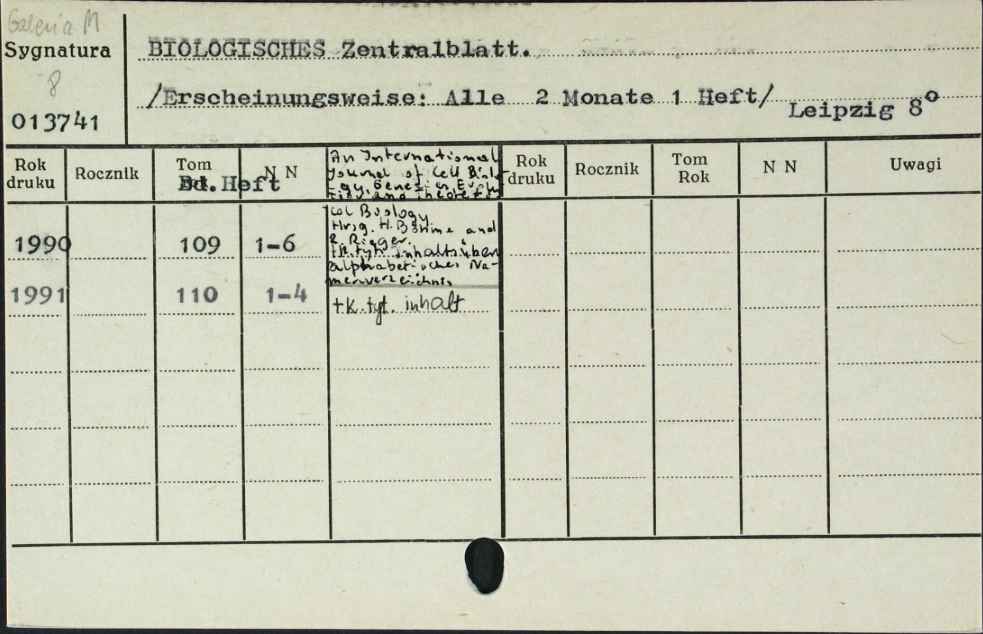 Galeria M
Sygnatura
8
013741
BIOLOGISCHES Zentralblatt.
/Erscheinungsweise: Alle 2 Monate 1 Heft/
Leipzig 8°
Rok druku
Rocznik
Tom
Bd. Heft
N N
Rok druku
Rocznik
Tom Rok
N N
Uwagi
An International
Journal of Cell Biol-
ogy, Genetics, Evolu-
tion and theoreti-
cal Biology.
Hrsg. H. Böhme and
R. Rieger.
+k. tyt. inhaltsüber
alphabetisches Na-
menverzeichnis
1990 109 1-6
1991 110 1-4 +k. tyt. inhalt